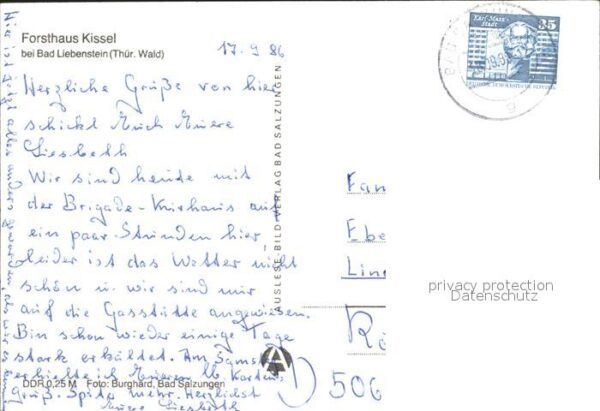 Forsthaus Kissel
bei Bad Liebenstein (Thür. Wald)
17.9.86
Herzliche Grüße von hier
schickt Euch Euere
Liesbeth
Wir sind heute mit
der Brigade-Kurhaus auf
ein paar Stunden hier,
leider ist das Wetter nicht
schön u. wir sind nur
auf die Gaststätte angewiesen.
Bin schon wieder einige Tage
stark erkältet. Am Samstag
erhielte ich Eueren lb Karten
Gruß. Später mehr. Herzlichst
Euere Liesbeth
Hier ist jetzt alles anders geworden
DDR 0,25 M Foto: Burghard, Bad Salzungen
AUSLESE-BILD-VERLAG BAD SALZUNGEN
Karl-Marx-
Stadt
35
DEUTSCHE DEMOKRATISCHE REPUBLIK
Fam
Ebe
Lin
506
privacy protection
Datenschutz